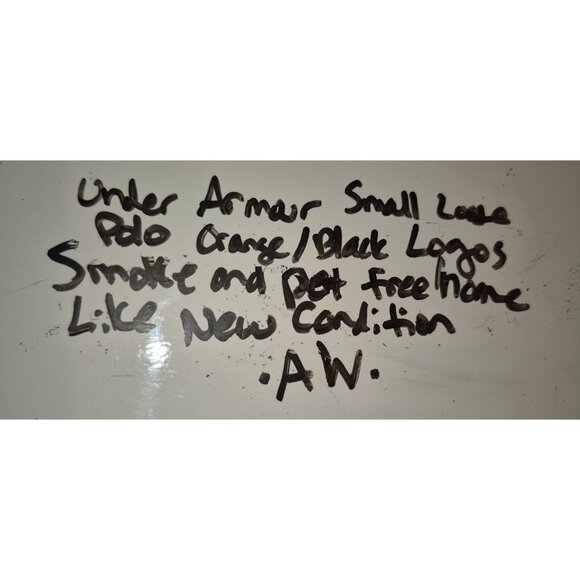 Under Armour Small Loose
Polo Orange/Black Logos
Smoke and pet free home
Like New Condition
.AW.